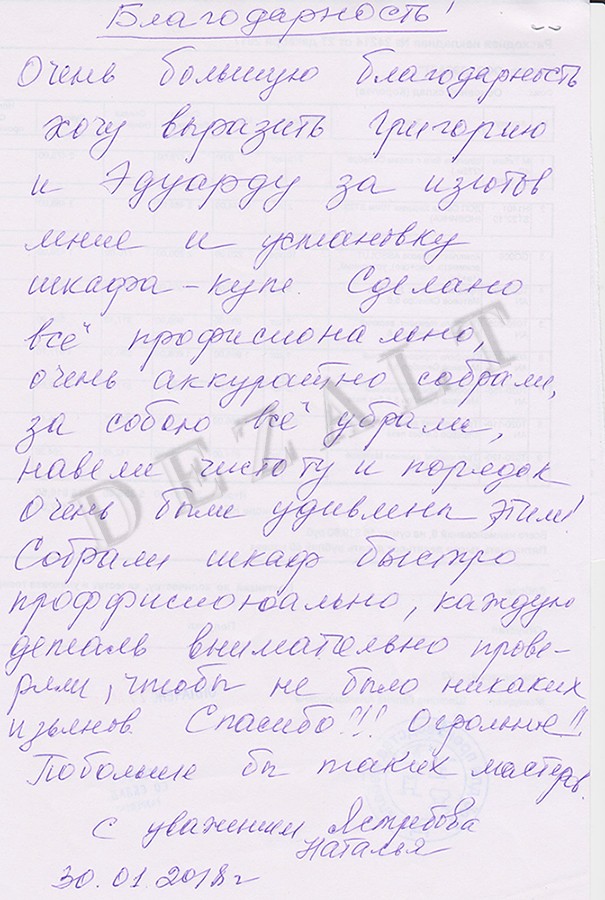 Благодарность!
Очень большую благодарность
хочу выразить Григорию
и Эдуарду за изготов
ление и установку
шкафа-купе. Сделано
всё профисионально,
очень аккуратно собрали,
за собою всё убрали,
навели чистоту и порядок
Очень были удивлены этим!
Собрали шкаф быстро
проффисионально, каждую
деталь внимательно прове-
ряли, чтобы не было никаких
изъянов. Спасибо!!! Огромное!!
Побольше бы таких мастеров.
с уважением Ястребова
Наталья
30.01.2018г
DEZALT